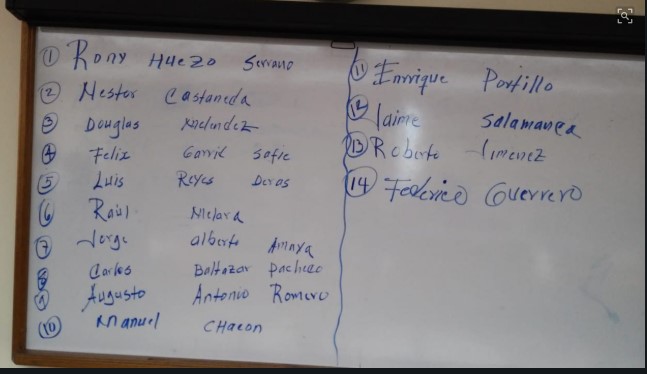 ① Rony Huezo Serrano
② Nestor Castaneda
③ Douglas Melendez
④ Felix Garrid Safie
⑤ Luis Reyes Deras
⑥ Raúl Melara
⑦ Jorge alberto Amaya
⑧ Carlos Baltazar Pacheco
⑨ Augusto Antonio Romero
⑩ Manuel CHacon
⑪ Enrrique Portillo
⑫ Jaime Salamanca
⑬ Roberto Jimenez
⑭ Federico Guerrero